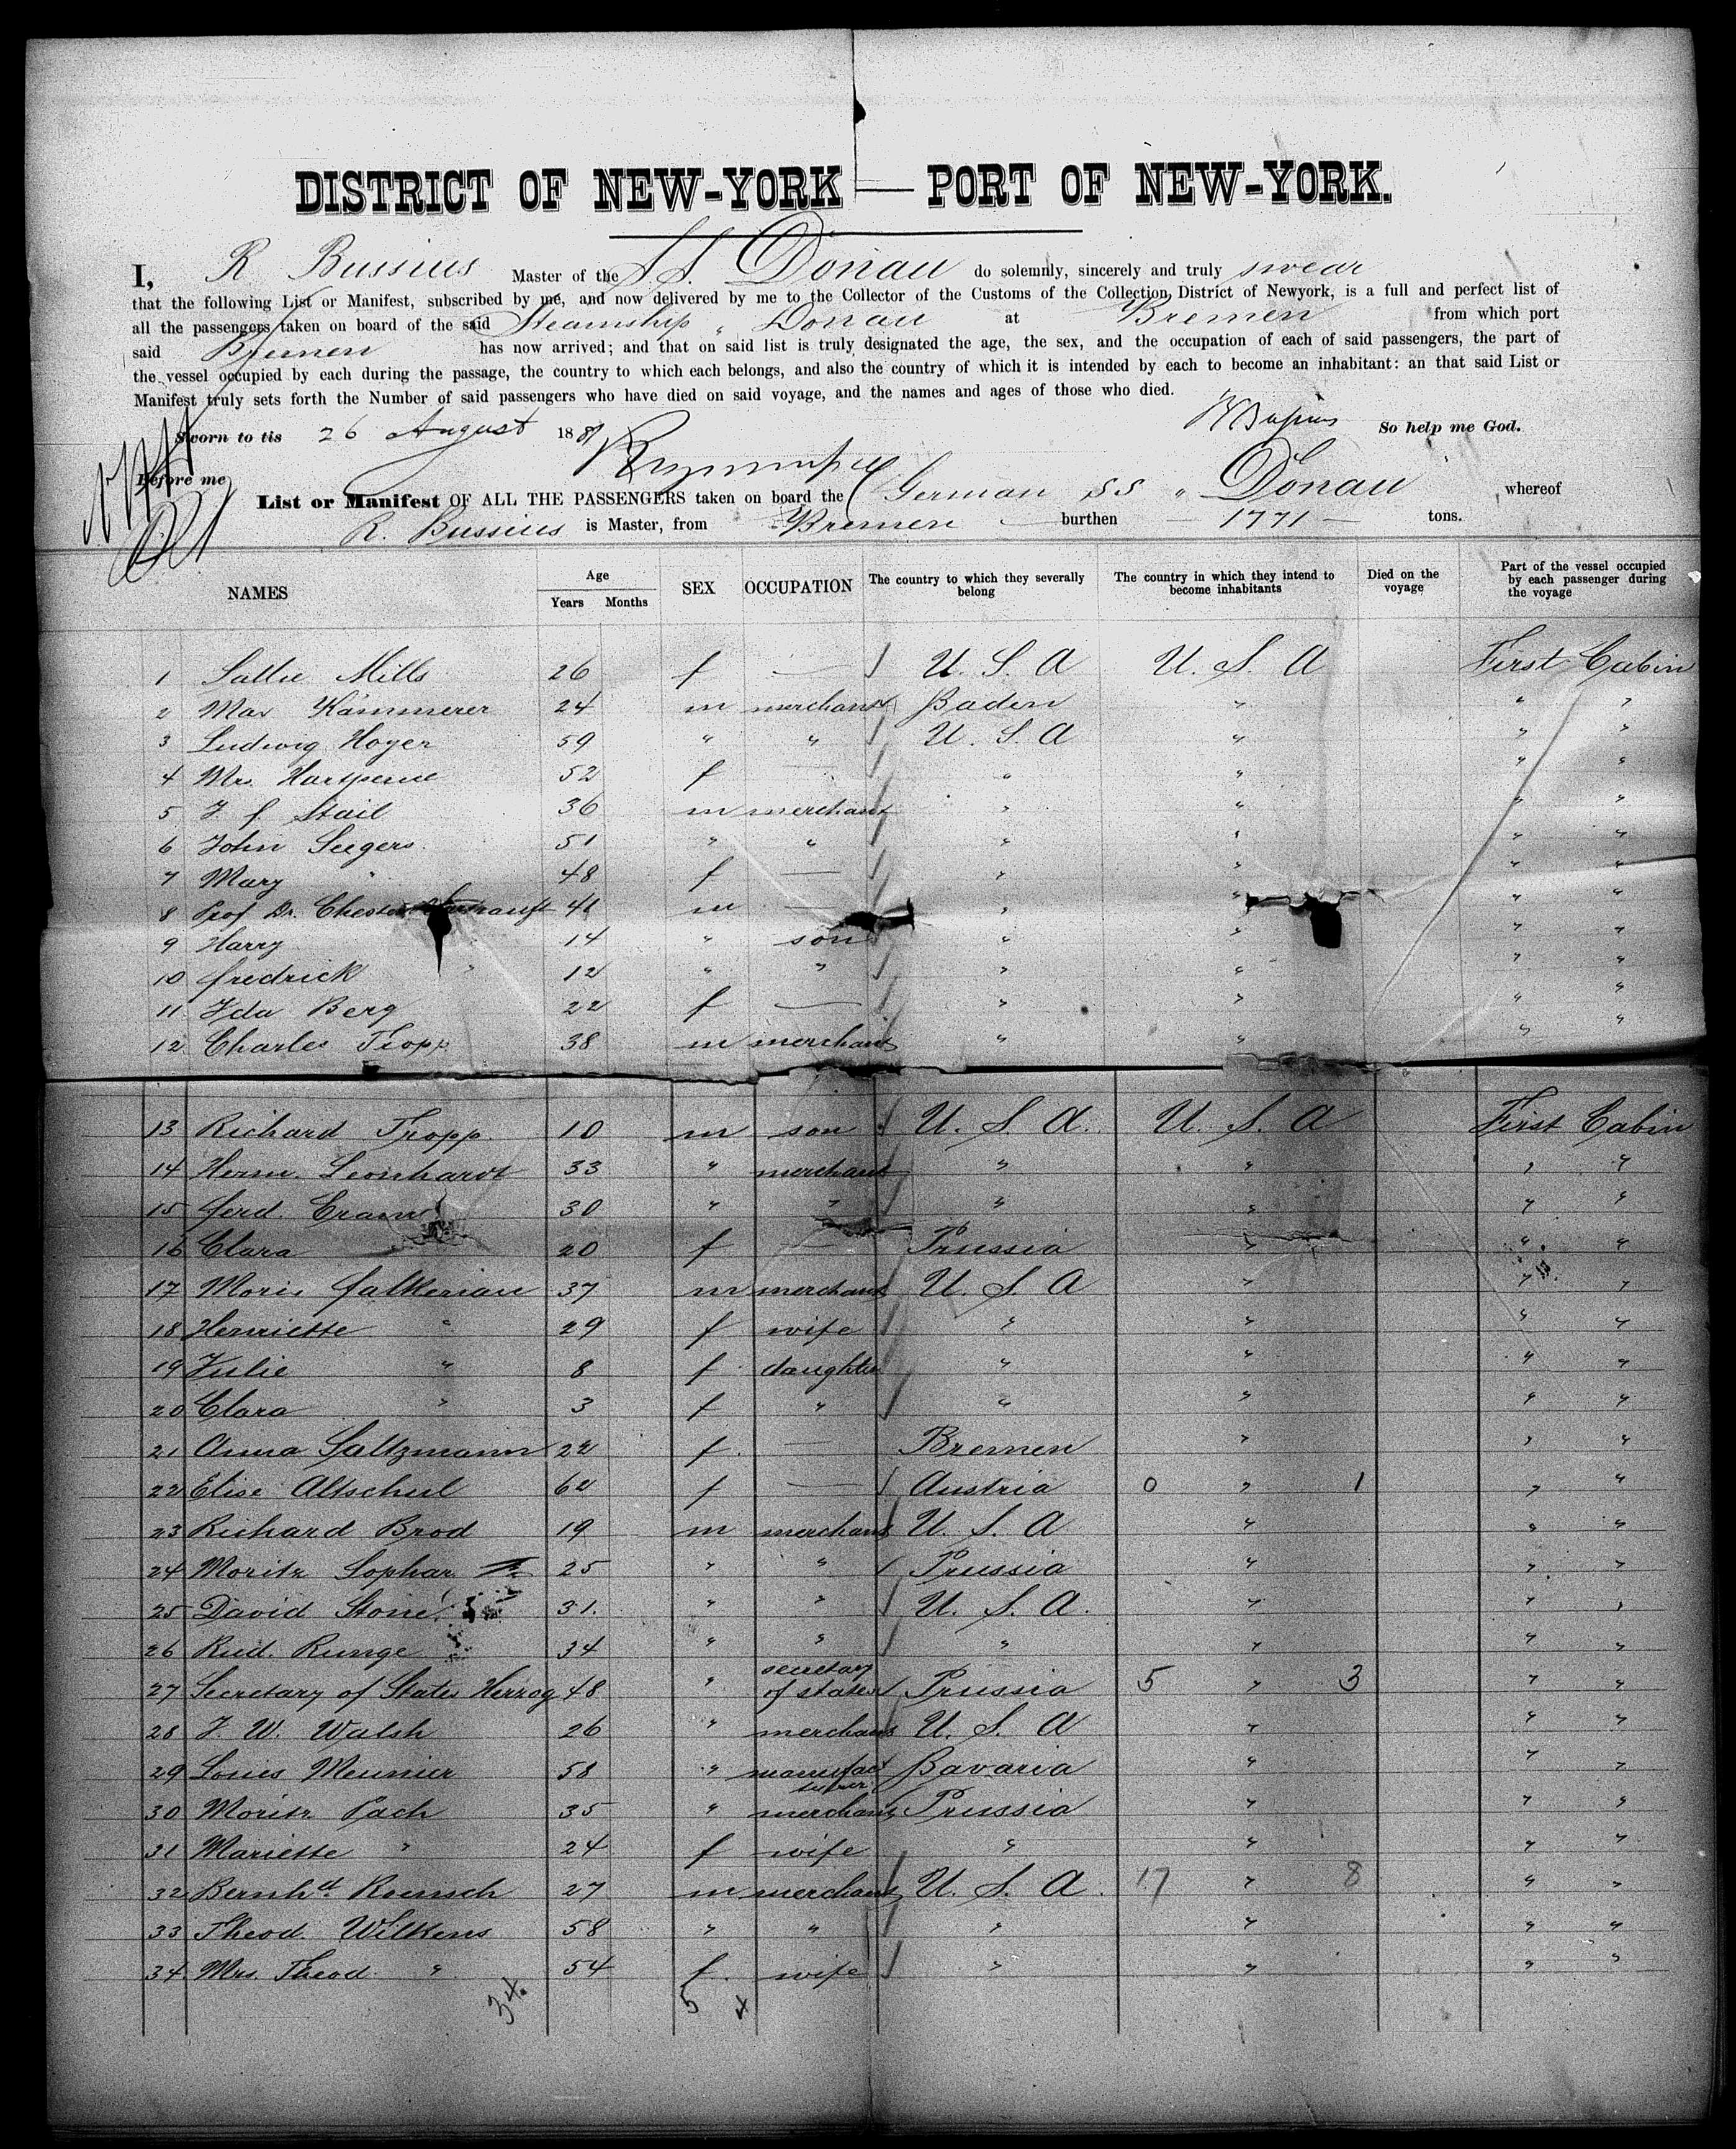 DISTRICT OF NEW-YORK — PORT OF NEW-YORK.
I, R Bussius Master of the S.S. Donau do solemnly, sincerely and truly swear
that the following List or Manifest, subscribed by me, and now delivered by me to the Collector of the Customs of the Collection District of Newyork, is a full and perfect list of
all the passengers taken on board of the said Steamship „ Donau at Bremen from which port
said Bremen has now arrived; and that on said list is truly designated the age, the sex, and the occupation of each of said passengers, the part of
the vessel occupied by each during the passage, the country to which each belongs, and also the country of which it is intended by each to become an inhabitant: an that said List or
Manifest truly sets forth the Number of said passengers who have died on said voyage, and the names and ages of those who died.
Sworn to tis 26 August 1881 So help me God.
Before me
List or Manifest OF ALL THE PASSENGERS taken on board the German SS „ Donau whereof
R. Bussius is Master, from Bremen burthen — 1771 — tons.
NAMES Age Years Months SEX OCCUPATION The country to which they severally belong The country in which they intend to become inhabitants Died on the voyage Part of the vessel occupied by each passenger during the voyage
1 Sallie Mills 26 f — U. S. A U. S. A First Cabin
2 Max Kämmerer 24 m merchant Baden " " "
3 Ludwig Hoyer 59 " " U. S. A " " "
4 Mrs. 52 f — " " " "
5 J. f. Stail 36 m merchant " " " "
6 John Seegers 51 " " " " " "
7 Mary " 48 f — " " " "
8 Prof Dr. Chester 41 m — " " " "
9 Harry 14 " son " " " "
10 fredrick " 12 " " " " " "
11 Ida Berg 22 f — " " " "
12 Charles Tropp 38 m merchant " " " "
13 Richard Tropp 10 m son U. S. A. U. S. A First Cabin
14 Herm. Leonhardt 33 " merchant " " " "
15 ferd. 30 " " " " " "
16 Clara 20 f — Prussia " " "
17 Moris falkenau 37 m merchant U. S. A " " "
18 Henriette " 29 f wife " " " "
19 Julie " 8 f daughter " " " "
20 Clara " 3 f " " " " "
21 Anna Saltzmann 22 f. — Bremen " " "
22 Elise Altschul 62 f — Austria 0 " 1 " "
23 Richard Brod 19 m merchant U. S. A " " "
24 Moritz Sophar 25 " " Prussia " " "
25 David Stone 31. " " U. S. A. " " "
26 Rud. Runge 34 " " " " " "
27 Secretary of States Herzog 48 " secretary of states Prussia 5 " 3 " "
28 J. W. Walsh 26 " merchant U. S. A " " "
29 Louis Meunier 58 " manufacturer Bavaria " " "
30 Moritz Pach 35 " merchant Prussia " " "
31 Mariette " 24 f wife " " " "
32 Bernhd. Roensch 27 m merchant U. S. A. 17 " 8 " "
33 Theod. Wilkens 58 " " " " " "
34 Mrs. Theod. " 54 f. wife " " " "
34. 5 4